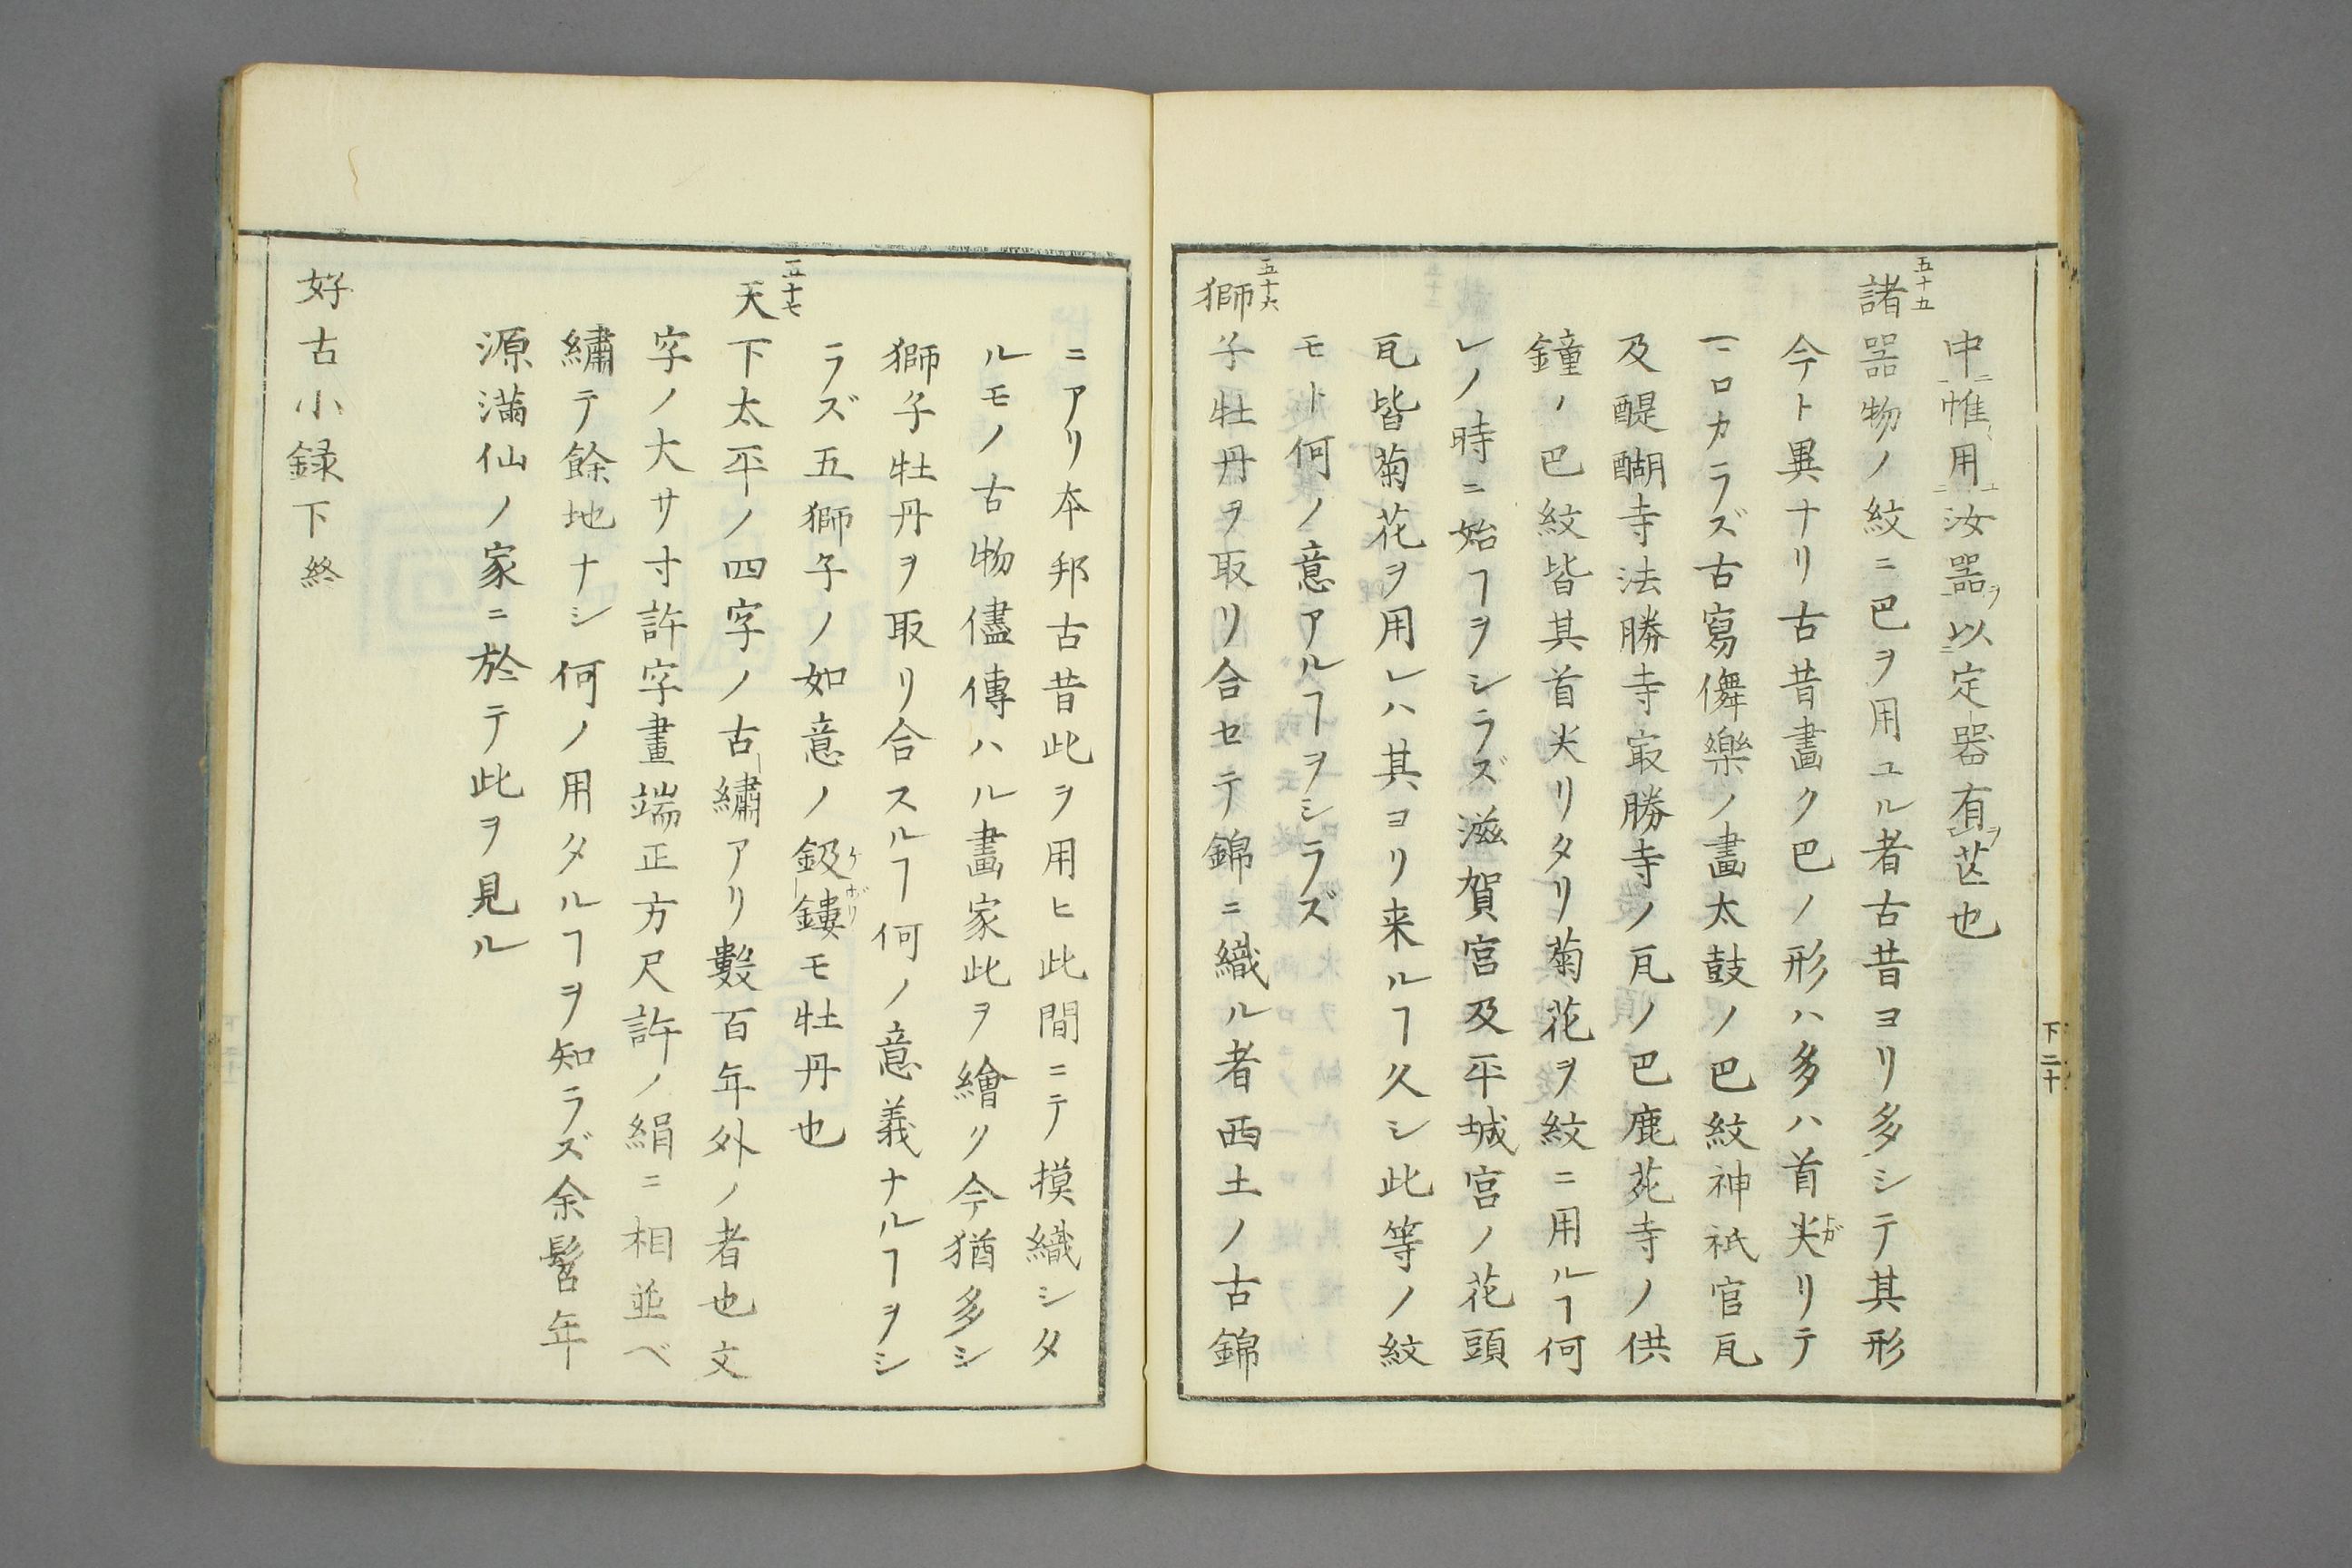 中帷用汝器以定器有芒也
五十五
諸器物ノ紋ニ巴ヲ用ユル者古昔ヨリ多シテ其形
今ト異ナリ古昔畫ク巴ノ形ハ多ハ首尖リテ
ニロカラズ古寫儛樂ノ畫太鼓ノ巴紋神祇官瓦
及醍醐寺法勝寺㝡勝寺ノ瓦ノ巴鹿苑寺ノ供
鐘ノ巴紋皆其首尖リタリ菊花ヲ紋ニ用ルヿ何
レノ時ニ始ヿヲシラズ滋賀宮及平城宮ノ花頭
瓦皆菊花ヲ用レハ其ヨリ来ルヿ久シ此等ノ紋
モト何ノ意アルヿヲシラズ
五十六
獅子牡丹ヲ取リ合セテ錦ニ織ル者西土ノ古錦
下二十
ニアリ本邦古昔此ヲ用ヒ此間ニテ摸織シタ
ルモノ古物儘傳ハル畫家此ヲ繪ク今猶多シ
獅子牡丹ヲ取リ合スルヿ何ノ意義ナルヿヲシ
ラズ五獅子ノ如意ノ鈒鏤モ牡丹也
五十七
天下太平ノ四字ノ古繡アリ數百年外ノ者也文
字ノ大サ寸許字畫端正方尺許ノ絹ニ相並ベ
繡テ餘地ナシ何ノ用タルヿヲ知ラズ余髫年
源満仙ノ家ニ於テ此ヲ見ル
好古小録下終